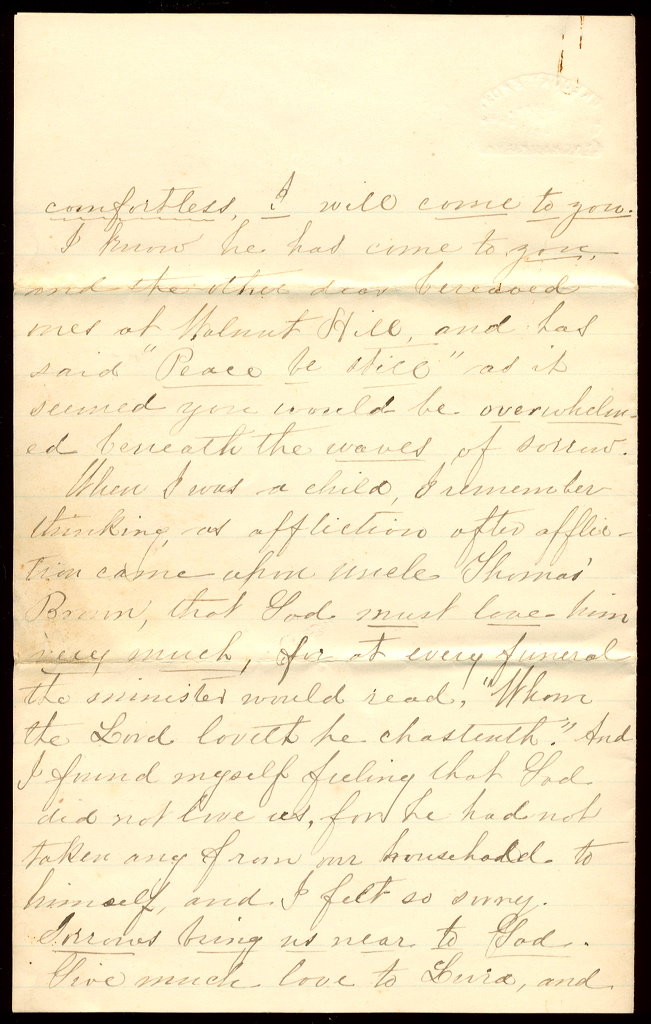 comfortless, I will come to you.
I know he has come to you,
and the other dear bereaved
ones at Walnut Hill, and has
said "Peace be still" as it
seemed you would be overwhelm-
ed beneath the waves of sorrow.
When I was a child, I remember
thinking, as affliction after afflic-
tion came upon uncle Thomas'
Brown, that God must love him
very much, for at every funeral
the minister would read, "Whom
the Lord loveth he chasteneth." And
I found myself feeling that God
did not love us, for he had not
taken any from our household to
himself, and I felt so sorry.
Sorrows bring us near to God.
Give much love to Lura, and